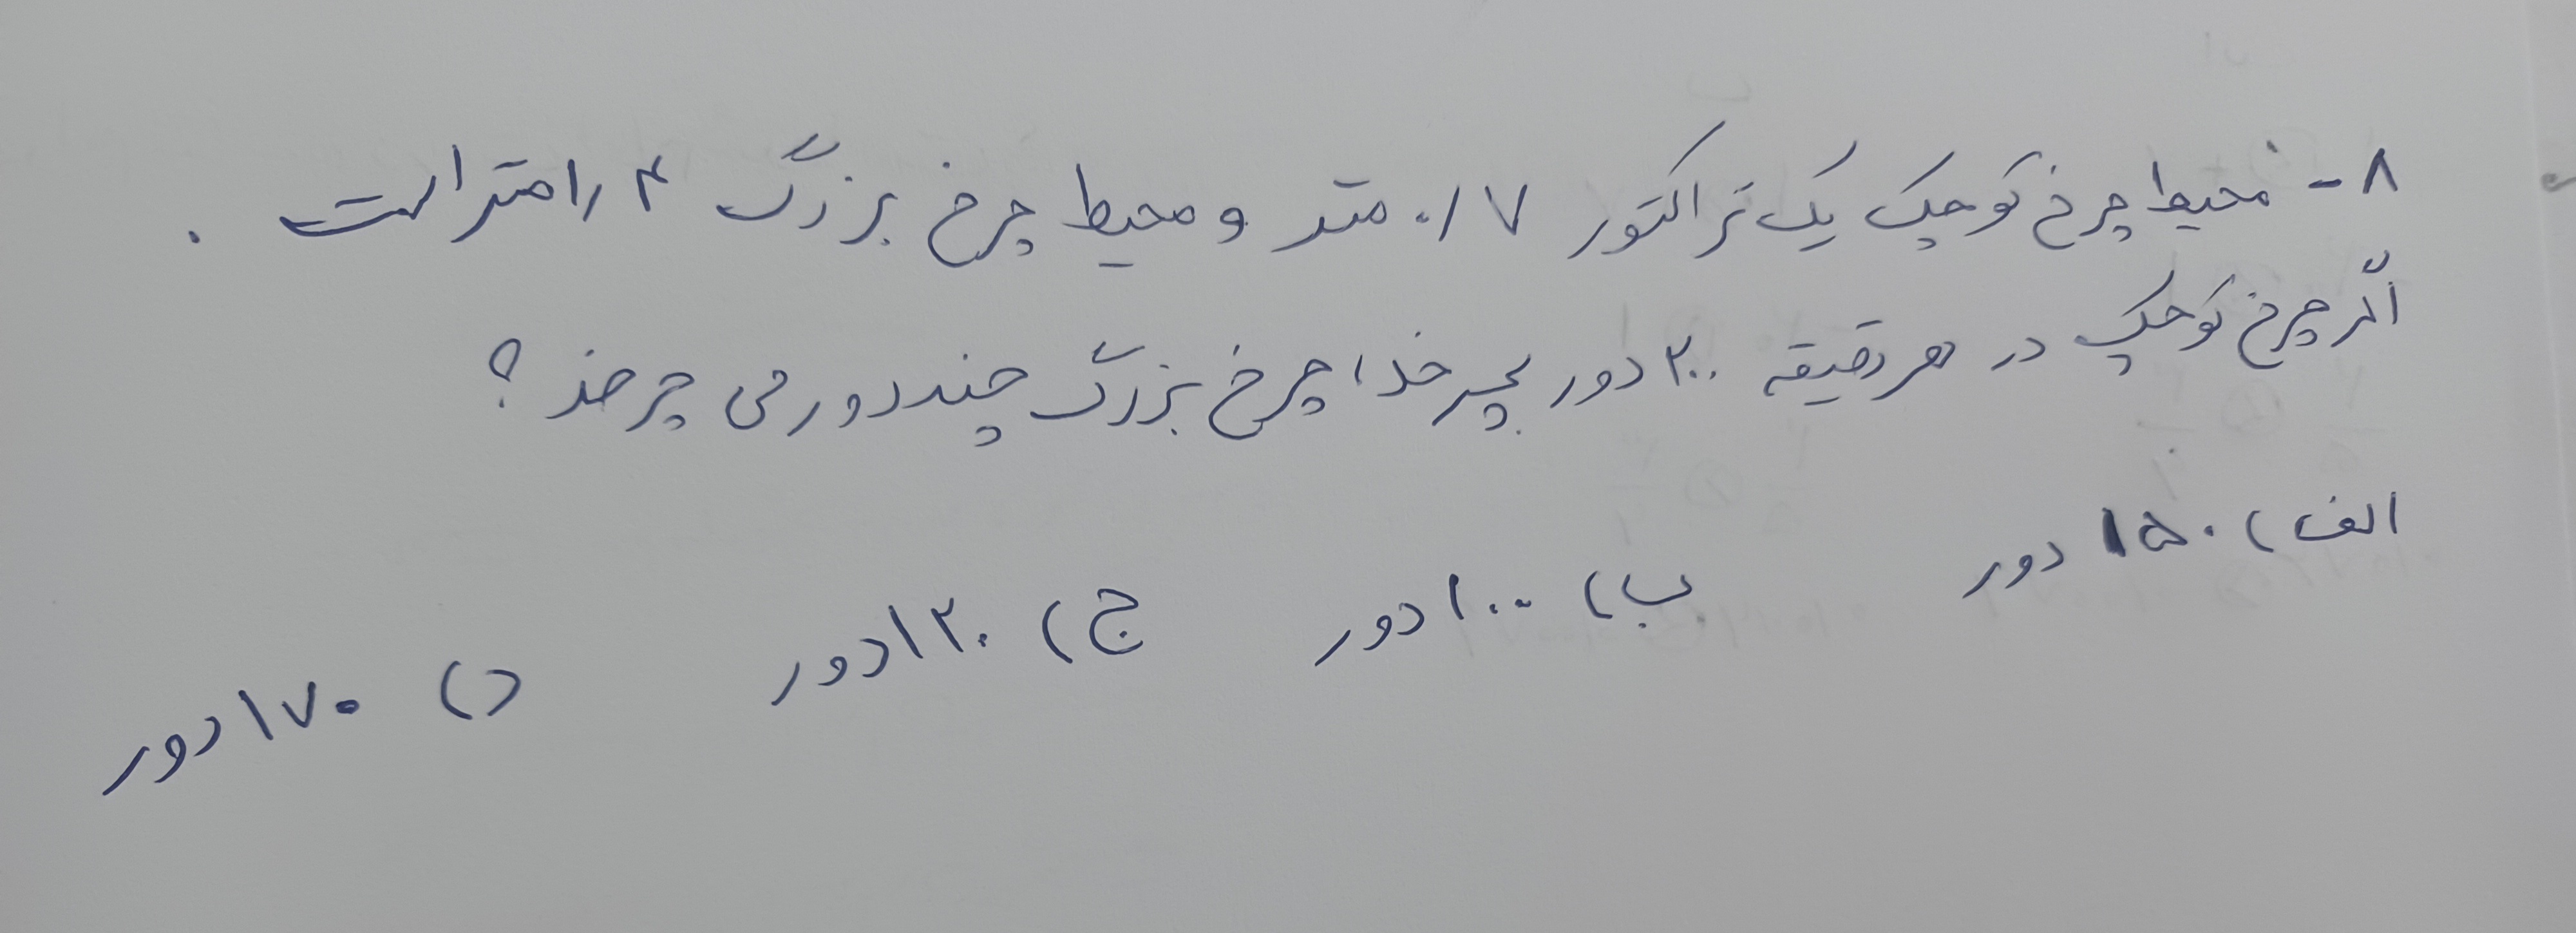 ۸- محیط چرخ کوچک یک تراکتور ۰/۷ متر و محیط چرخ بزرگ ۱/۴ متر است .
اگر چرخ کوچک در هر دقیقه ۲۰۰ دور بچرخد، چرخ بزرگ چند دور می چرخد ؟
الف) ۱۵۰ دور ب) ۱۰۰ دور ج) ۱۲۰ دور د) ۱۷۰ دور